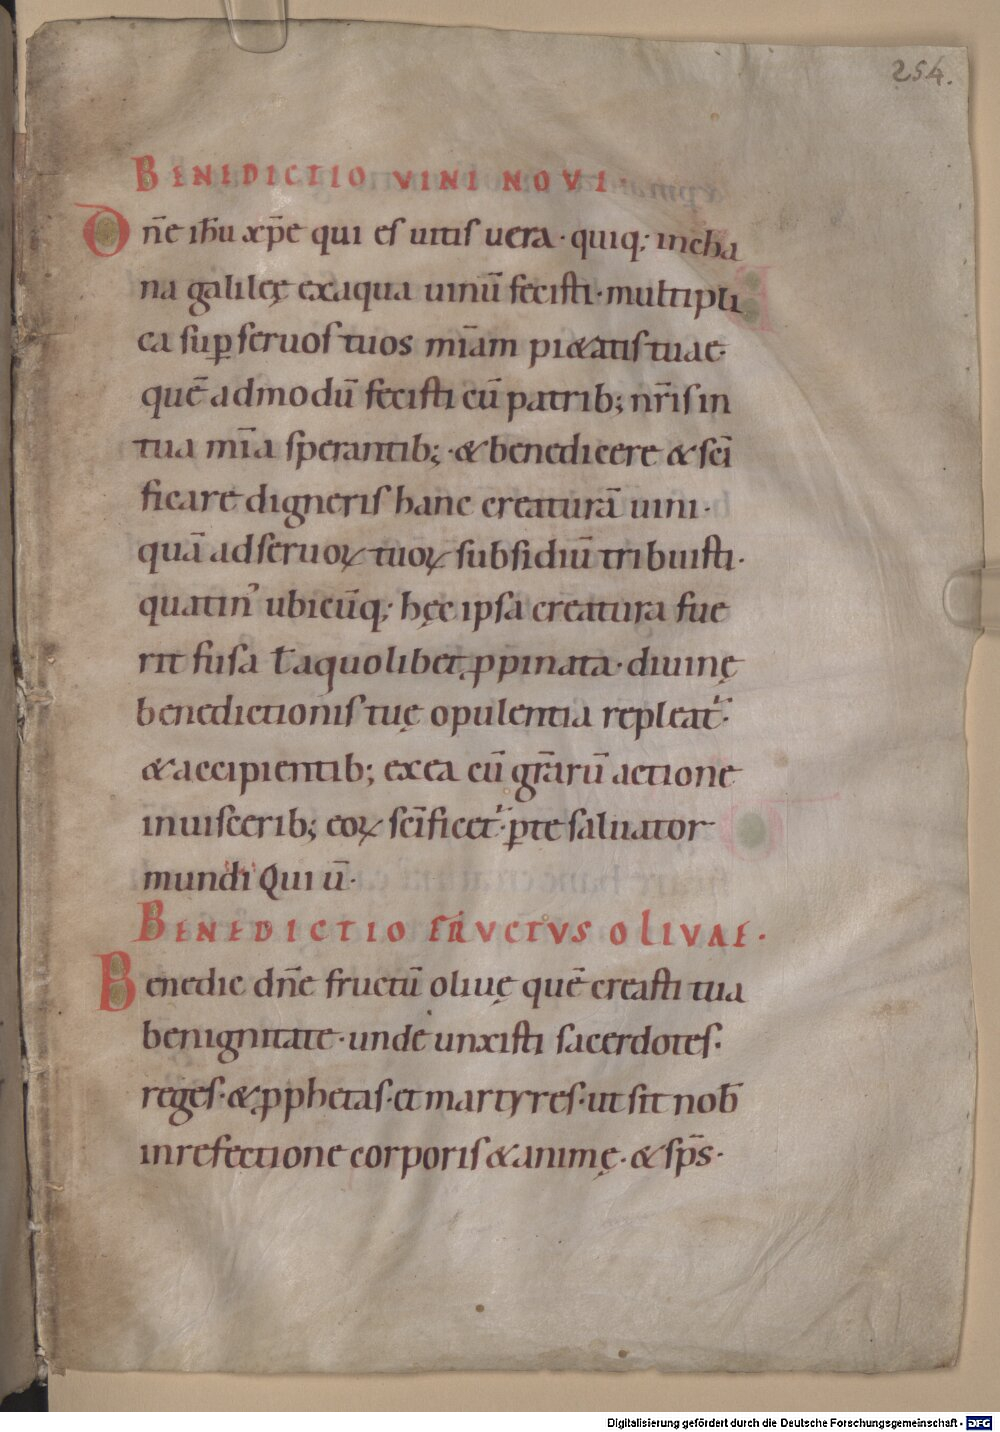 254.
BENEDICTIO VINI NOVI·
Dn̄e ih̄u xp̄e qui es uitis uera· quiq; incha
na galileę exaqua uinū fecisti· multipli
ca sup̱ seruos tuos m̄iam pi&atis tuae·
quē admodū fecisti cū patrib; nr̄is in
tua m̄ia sperantib;· & benedicere & sc̄i
ficare digneris hanc creaturā uini·
quā ad seruoꝝ tuoꝝ subsidiū tribuisti·
quatin᾽ ubicūq; hęc ipsa creatura fue
rit fusa ł aquolibet ꝓpinata· diuinę
benedictionis tuę opulentia repleat᷑·
& accipientib; exea cū gr̄arū actione
inuiscerib; eoꝝ sc̄ificet᷑· ꝑte saluator
mundi Qui ū·
BENEDICTIO FRVCTVS OLIVAE·
Benedic dn̄e fructū oliuę quē creasti tua
benignitate· unde unxisti sacerdotes·
reges· & ꝓphetas· et martyres· ut sit nob̄
inrefectione corporis & animę· & sp̄s·
Digitalisierung gefördert durch die Deutsche Forschungsgemeinschaft - DFG